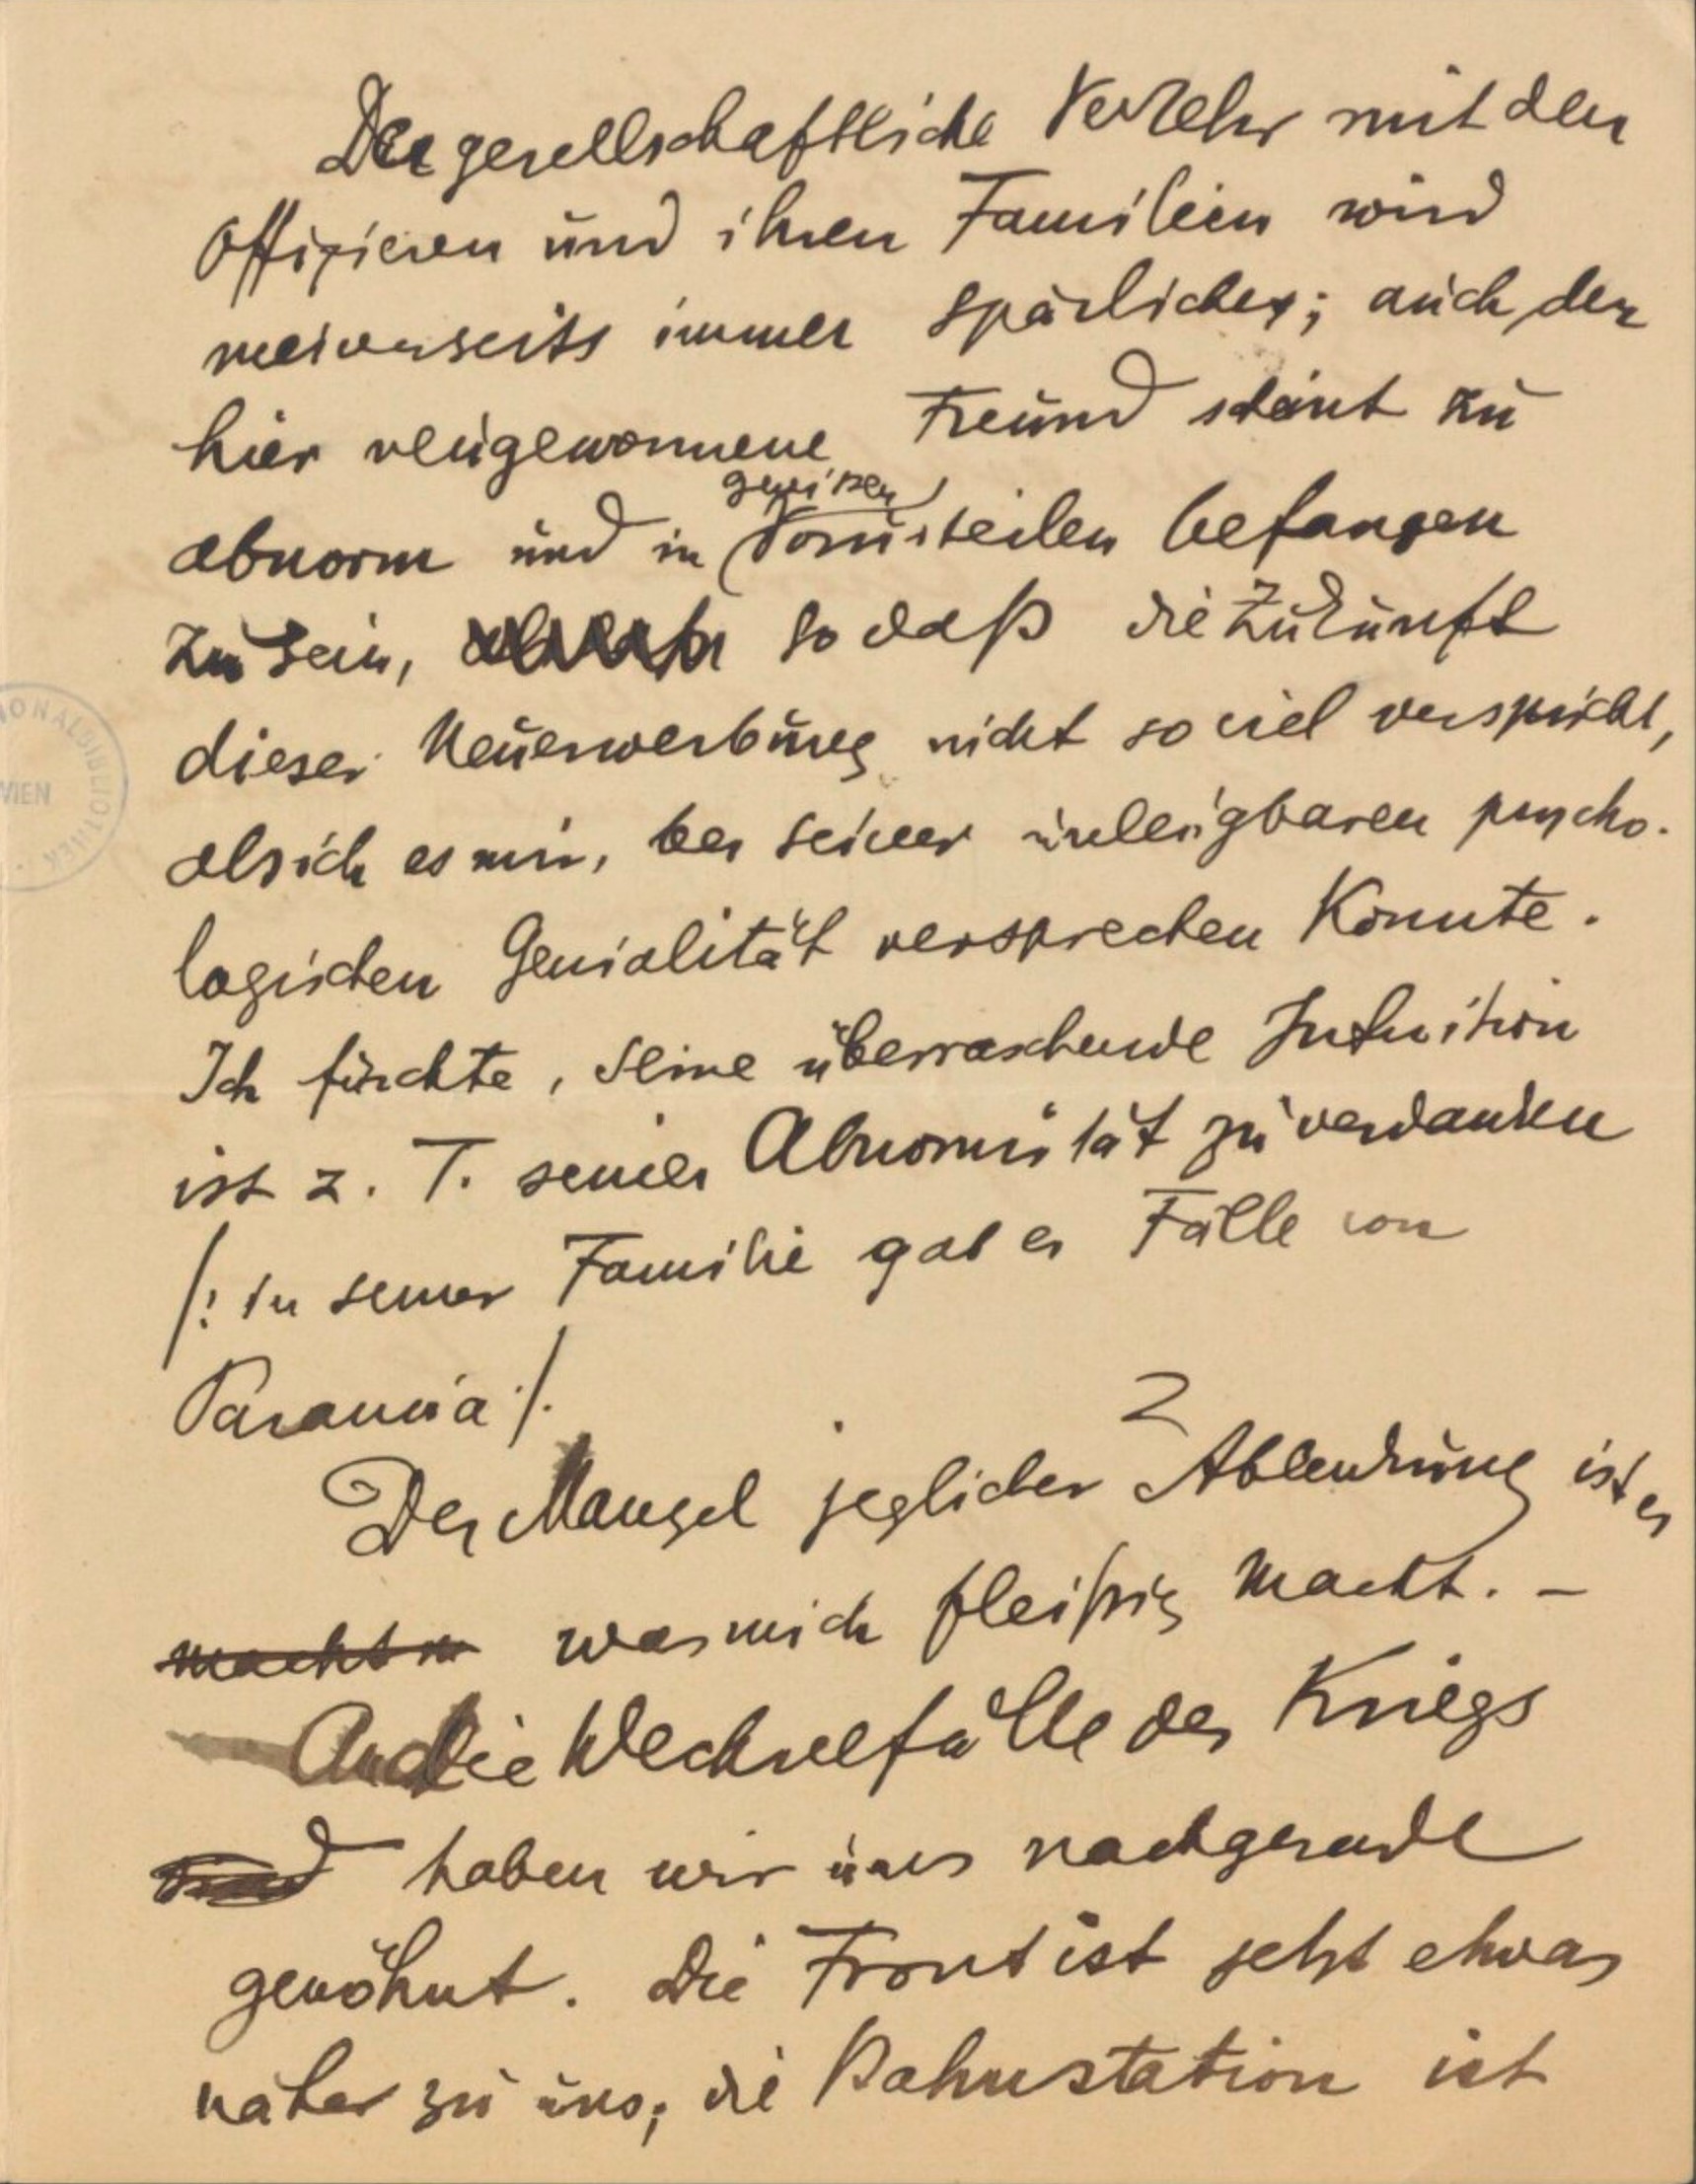 Der gesellschaftliche Verkehr mit den
Offizieren und ihren Familien wird
meinerseits immer spärlicher; auch der
hier neugewonnene Freund scheint zu
gewissen
abnorm und in Vorurteilen befangen
zu sein, so daß die Zukunft
dieser Neuerwerbung nicht so viel verspricht,
als ich es mir, bei seiner unleugbaren psycho-
logischen Genialität versprechen konnte.
Ich fürchte, seine überraschende Intuition
ist z. T. seiner Abnormität zu verdanken
/: in seiner Familie gab es Fälle von
Paranoia :/.
2
Der Mangel jeglicher Ablenkung ist es
macht m was mich fleißig macht. –
An die Wechselfälle des Kriegs
sind haben wir uns nachgerade
gewöhnt. Die Front ist jetzt etwas
näher zu uns; die Bahnstation ist
ONALBIBLIOTHEK
WIEN